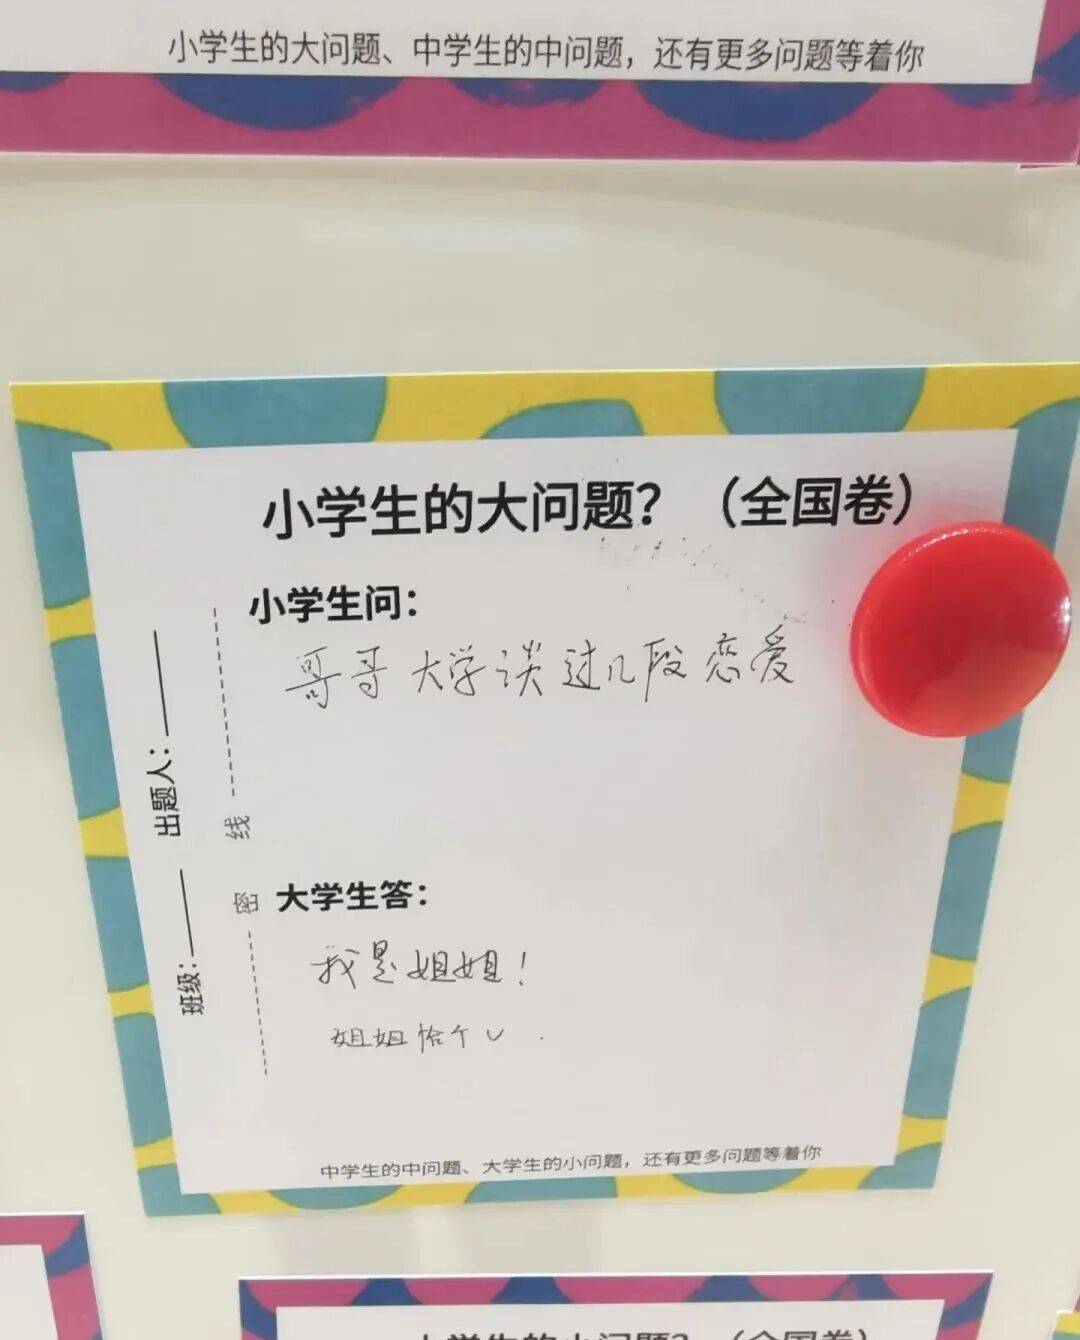 小学生的大问题、中学生的中问题，还有更多问题等着你
小学生的大问题？（全国卷）
小学生问：
哥哥大学谈过几段恋爱
出题人：
班级：
线
密
大学生答：
我是姐姐！
姐姐恰个V
中学生的中问题、大学生的小问题，还有更多问题等着你